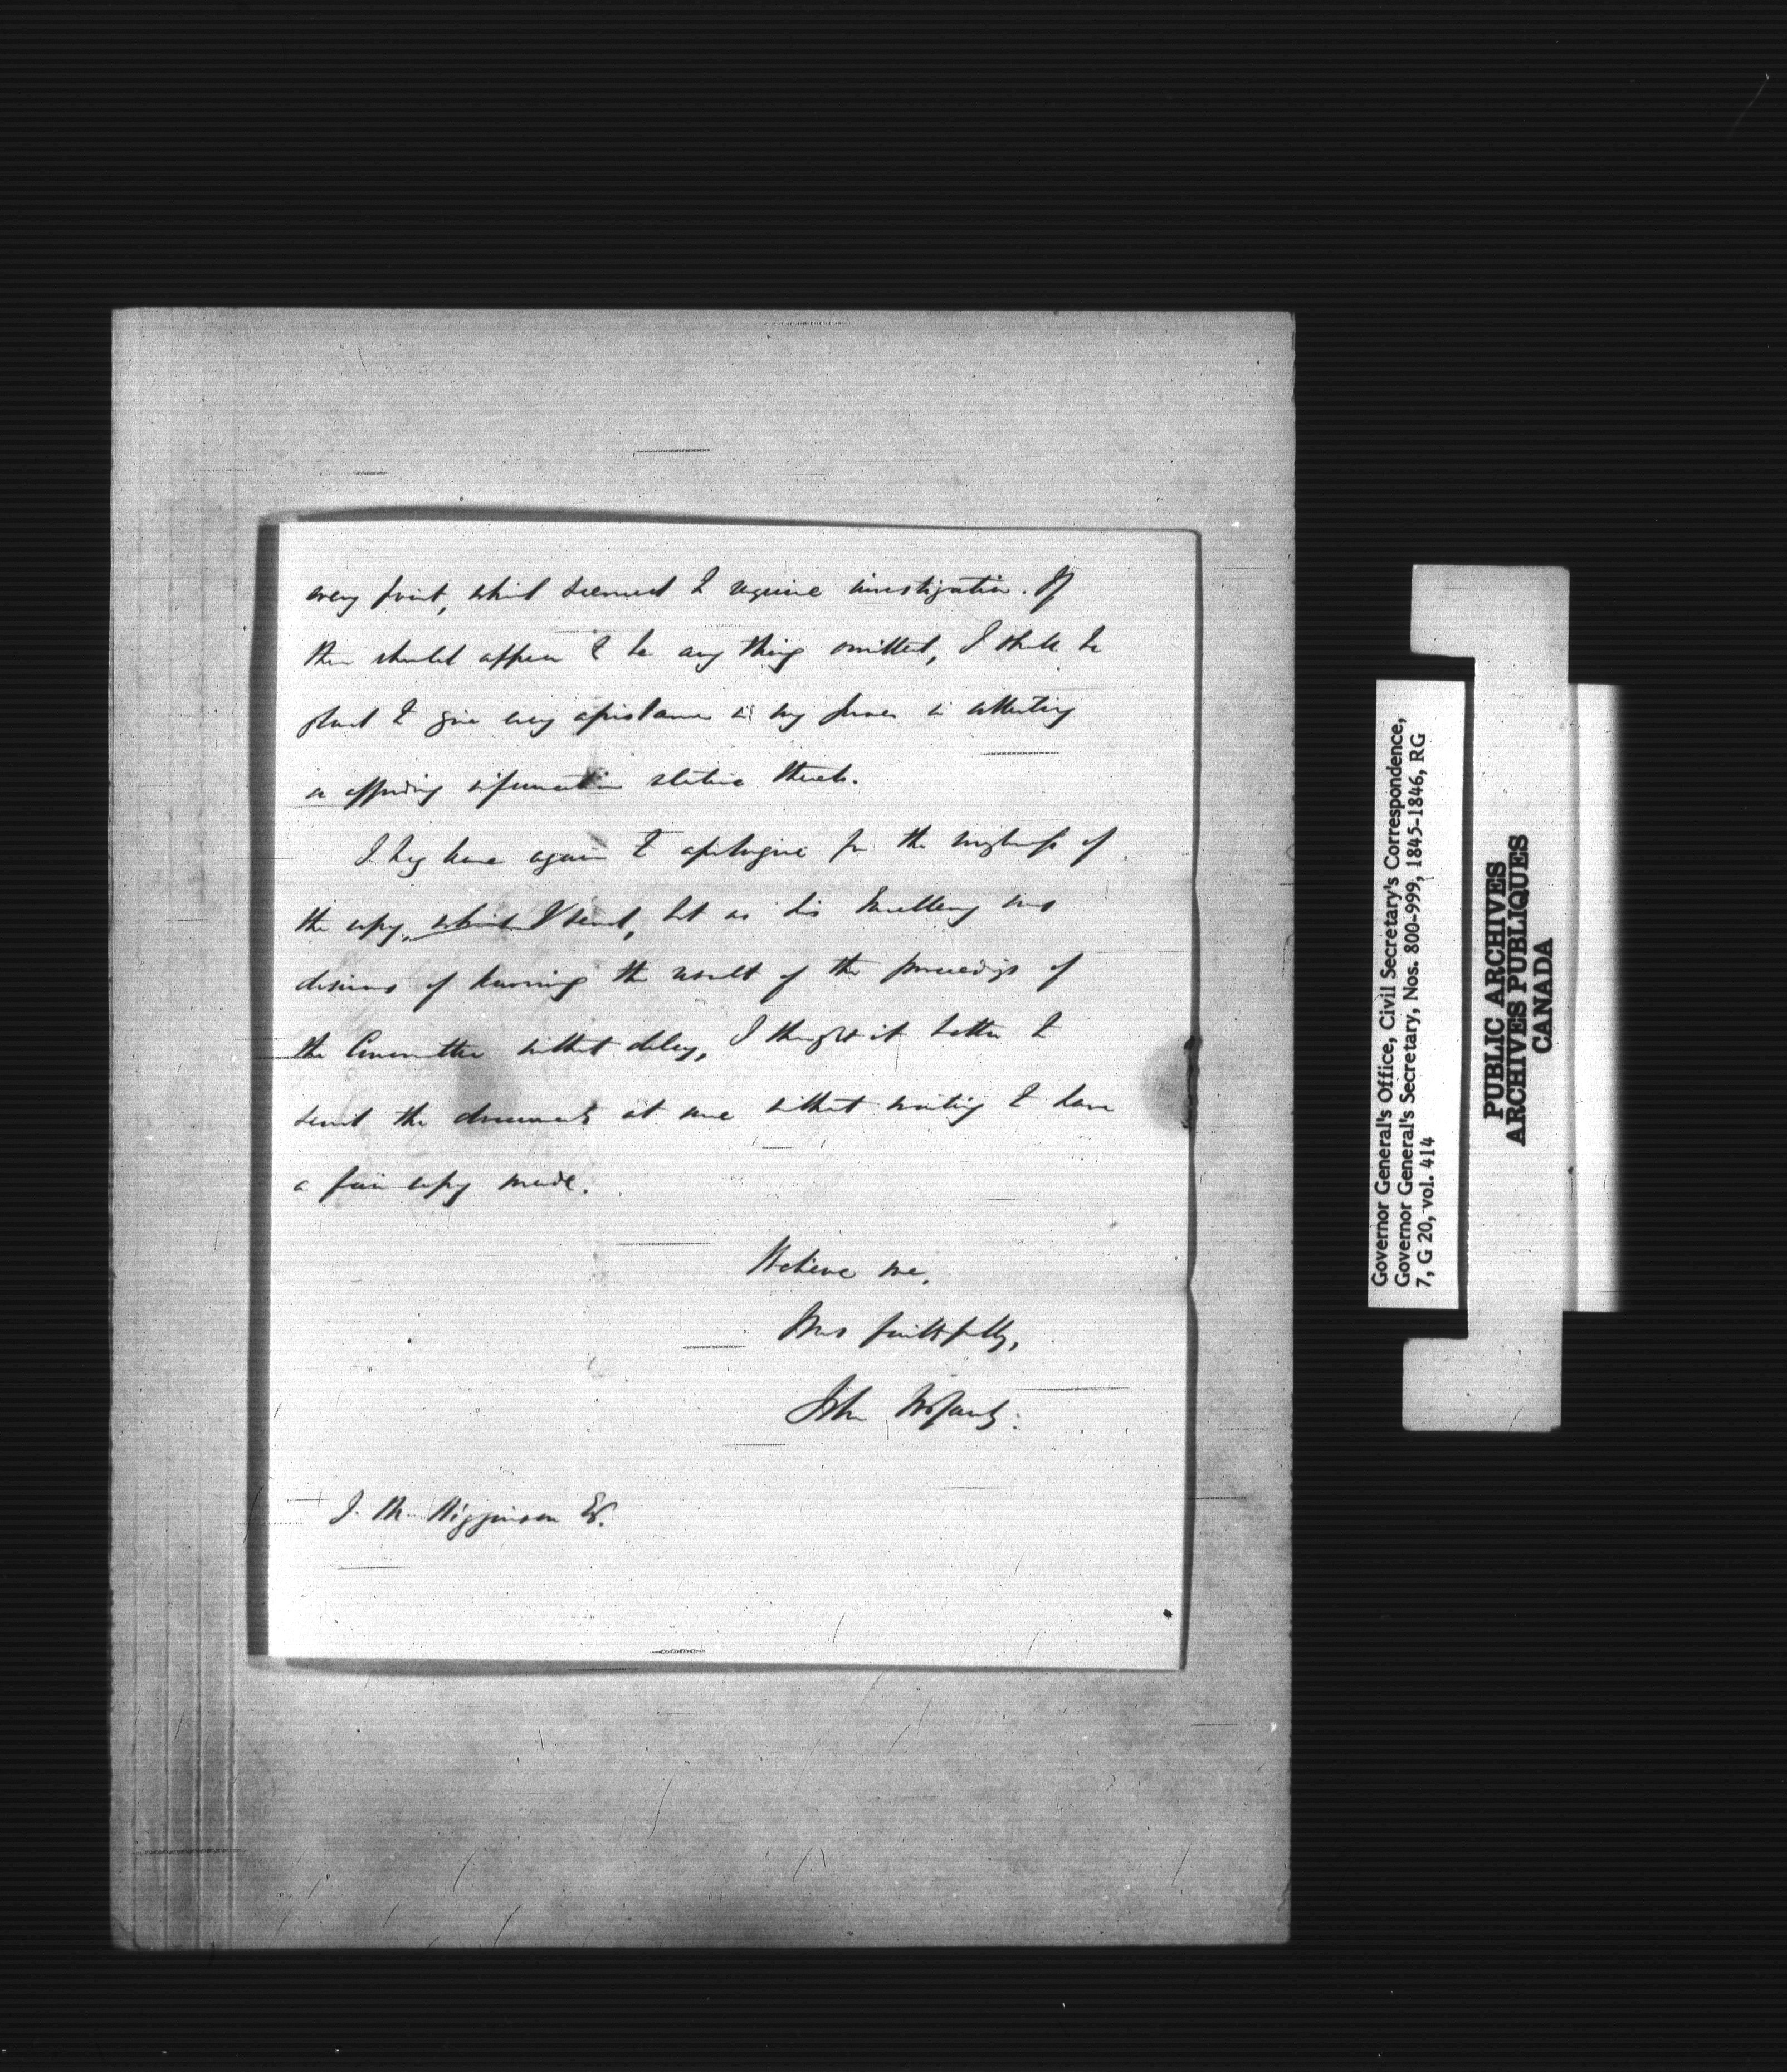 every point, which seemed to require investigation. If
there should appear to be any thing omitted, I shall be
glad to give every assistance in my power in collecting
or affording information relative thereto.
I beg leave again to apologise for the roughness of
the copy, which I send, but as his Excellency was
desirous of knowing the result of the proceedings of
the Committee without delay, I thought it better to
send the documents at once without waiting to have
a fair copy made.
Believe me,
Yrs faithfully,
John
J. M. Higginson Esq.
Governor General's Office, Civil Secretary's Correspondence,
Governor General's Secretary, Nos. 800-999, 1845-1846, RG
7, G 20, vol. 414
PUBLIC ARCHIVES
ARCHIVES PUBLIQUES
CANADA